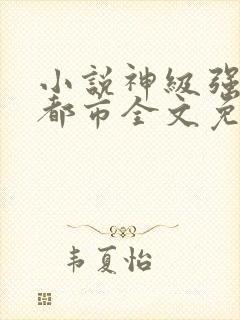 小説神級强
都市全文免
韦夏怡